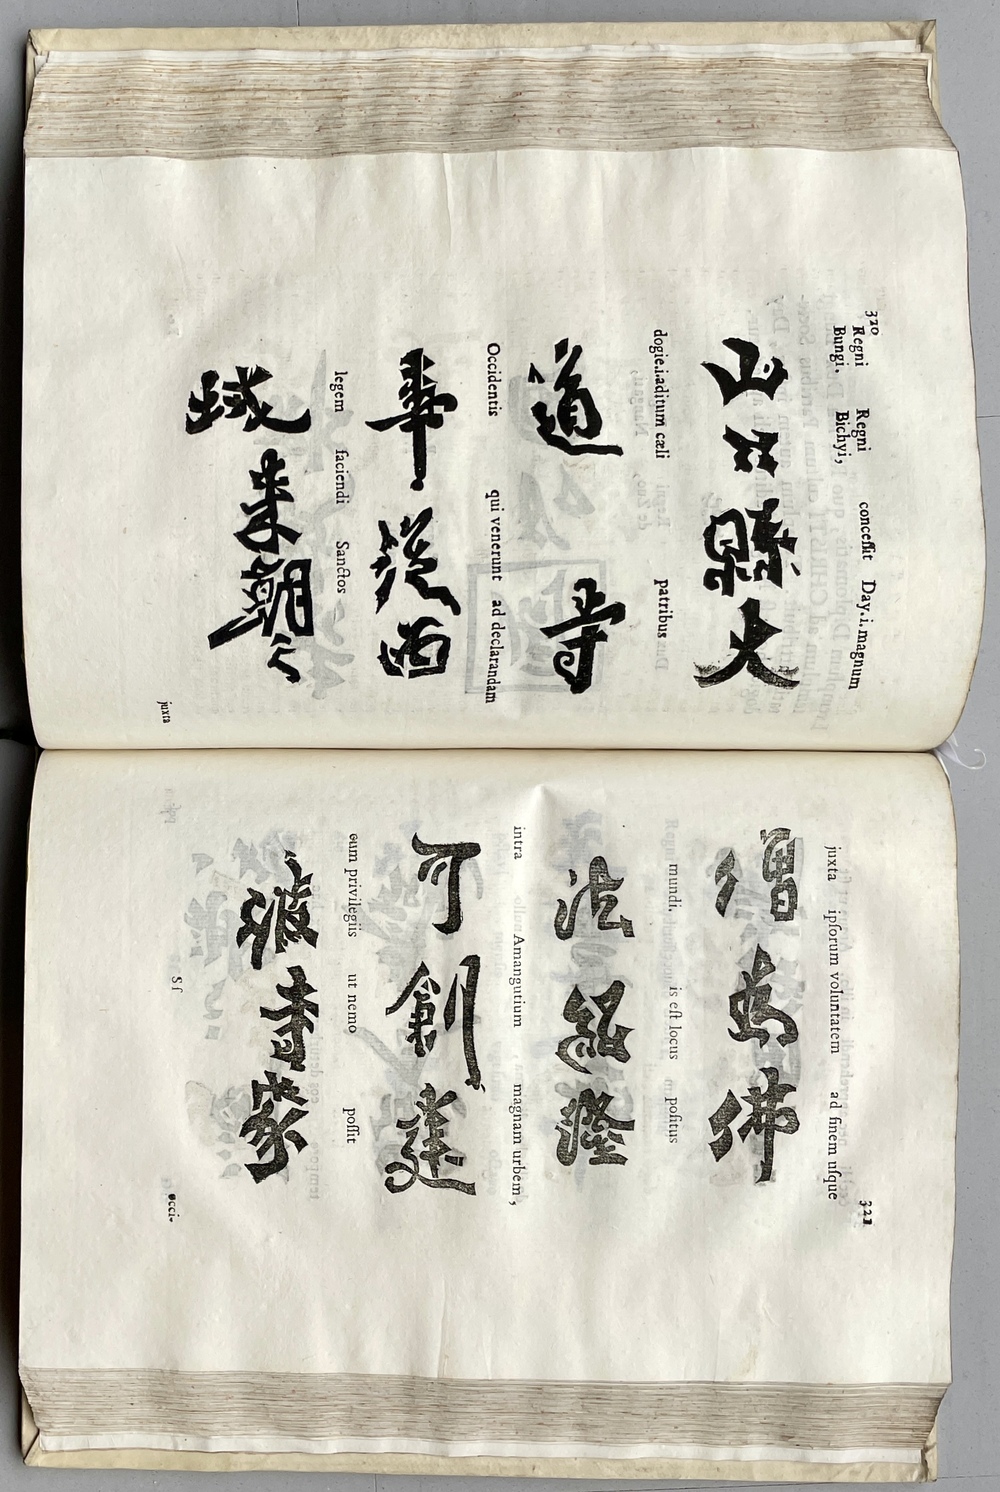 320
Regni Regni conceſſit Day.i.magnum
Bungi. Bichyi,
山口縣大
dogie.i.aditum cæli patribus
道寺
Occidentis qui venerunt ad declarandam
事從西
legem faciendi Sanctos
域來朝之
juxta
321
juxta ipſorum voluntatem ad finem uſque
僧為佛
mundi. is eſt locus m poſitus
法紹隆
intra Amangutium magnam urbem,
可創建
cum privilegiis ut nemo poſſit
彼寺家
S ſ
occi-